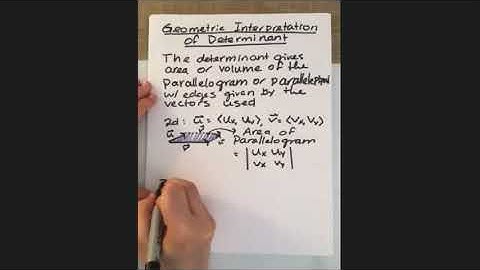 Geometric Interpretation
of Determinant
The determinant gives
area or volume of the
parallelogram or parallelepiped
w/ edges given by the
vectors used
2d: u⃗ = ⟨ux, uy⟩, v⃗ = ⟨vx, vy⟩
Area of
Parallelogram
= | ux uy |
| vx vy |